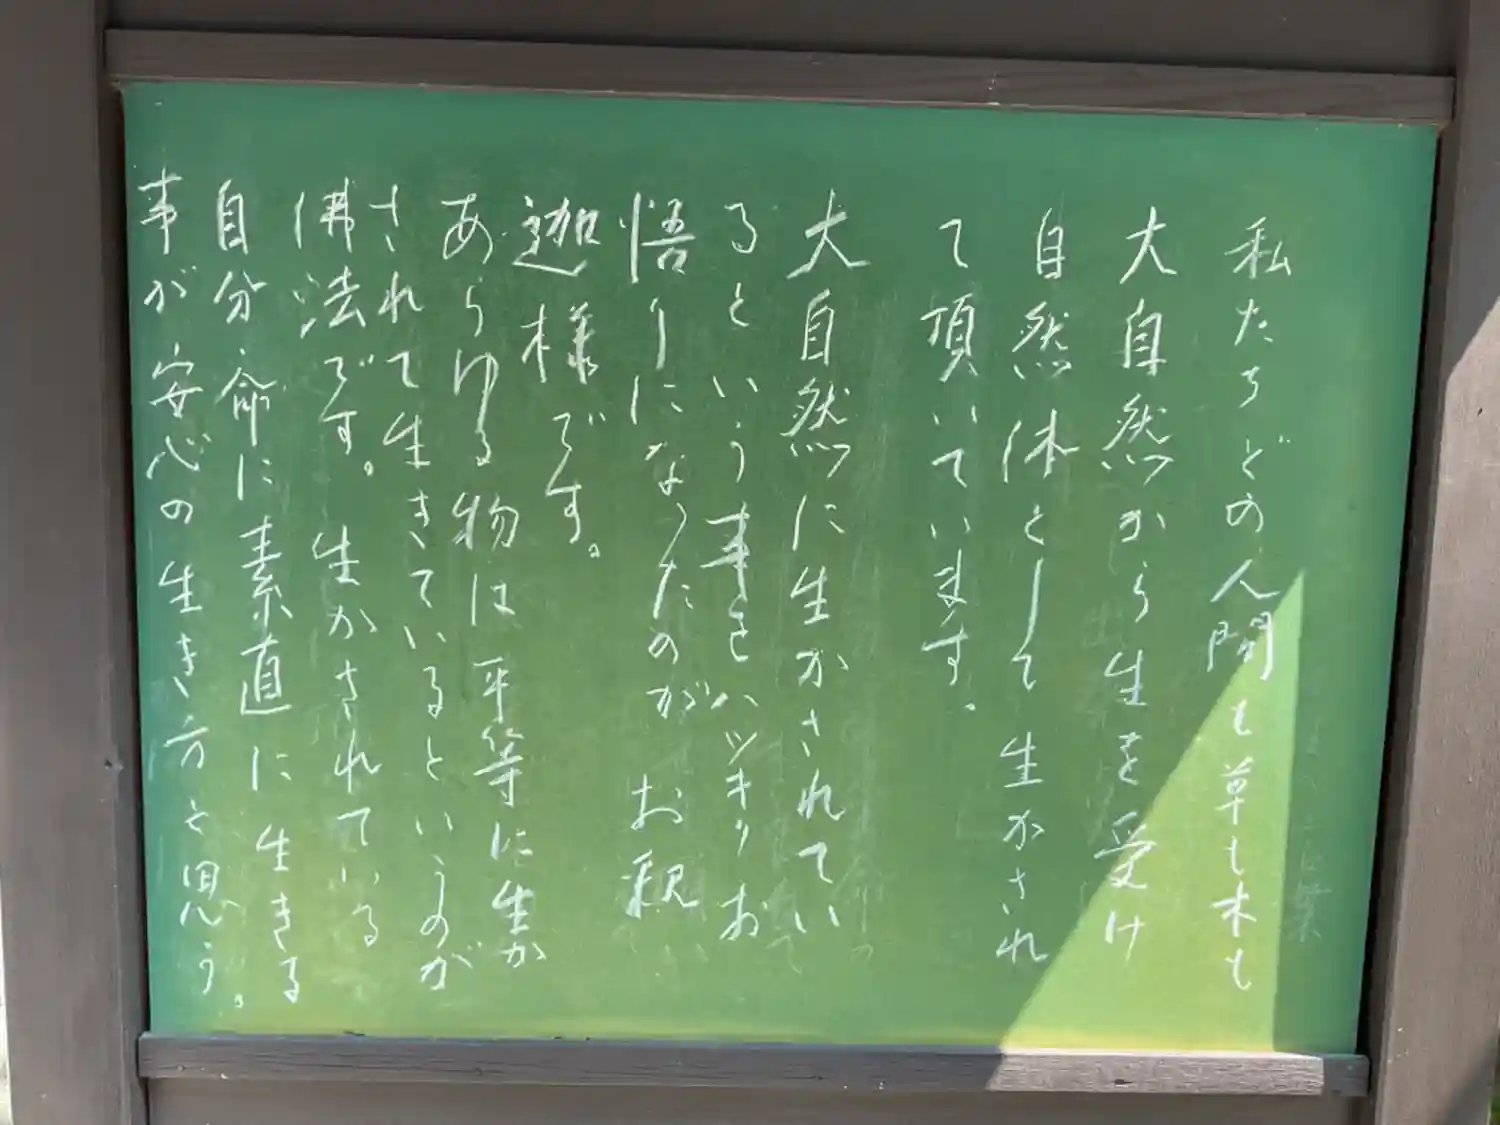 私たちどの人間も草も木も
大自然から生を受け
自然体として生かされ
て頂いています。
大自然に生かされてい
るという事をハッキリお
悟りになったのがお釈
迦様です。
あらゆる物は平等に生か
されて生きているというのが
佛法です。生かされている
自分命に素直に生きる
事が安心の生き方と思う。